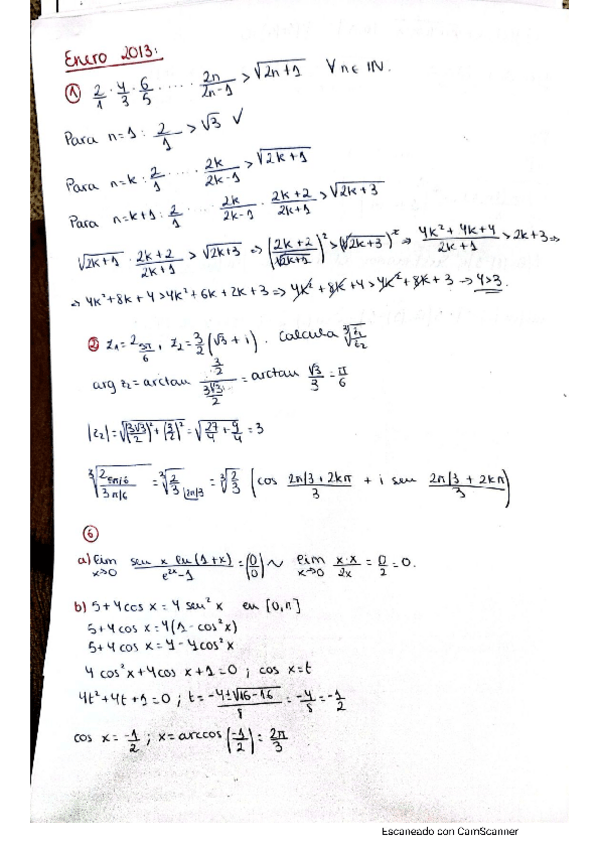 Enero 2013:
① 2/1 · 4/3 · 6/5 · ... · 2n/2n-1 > √2n+1 ∀n∈ℕ.
Para n=1: 2/1 > √3 ✓
Para n=k: 2/1 · ... · 2k/2k-1 > √2k+1
Para n=k+1: 2/1 · ... · 2k/2k-1 · 2k+2/2k+1 > √2k+3
√2k+1 · 2k+2/2k+1 > √2k+3 ⇒ (2k+2/√2k+1)² > (√2k+3)² ⇒ 4k²+4k+4/2k+1 > 2k+3 ⇒
⇒ 4k²+8k+4 > 4k²+6k+2k+3 ⇒ 4k²+8k+4 > 4k²+8k+3 → 4>3.
② z₁=2 5π/6, z₂=3/2(√3+i). Calcula ∛z₁/z₂
arg z₂=arctan 3/2 / 3√3/2 = arctan √3/3 = π/6
|z₂|=√(3√3/2)²+(3/2)² = √27/4+9/4 = 3
∛2 5π/6 / 3 π/6 = ∛2/3 2π/3 = ∛2/3 (cos 2π/3+2kπ/3 + i sen 2π/3+2kπ/3)
⑥
a) lim x→0 sen x ln(1+x)/e²ˣ-1 = (0/0) ~ lim x→0 x·x/2x = 0/2 = 0.
b) 5+4cos x=4 sen² x en [0,π]
5+4 cos x=4(1-cos²x)
5+4 cos x=4-4cos²x
4 cos²x+4cos x+1=0; cos x=t
4t²+4t+1=0; t=-4±√16-16/8 = -4/8 = -1/2
cos x=-1/2; x=arccos(-1/2)=2π/3
Escaneado con CamScanner